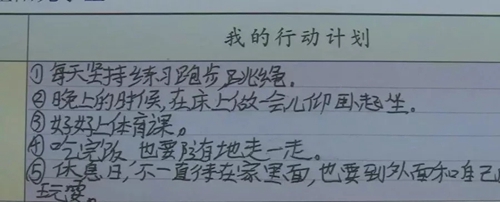 我的行动计划
①每天坚持练习跑步,跳绳。
②晚上的时候,在床上做一会儿仰卧起坐。
③好好上体育课。
④吃完饭,也要随地走一走。
⑤休息日,不一直待在家里面,也要到外面和自己
玩耍。